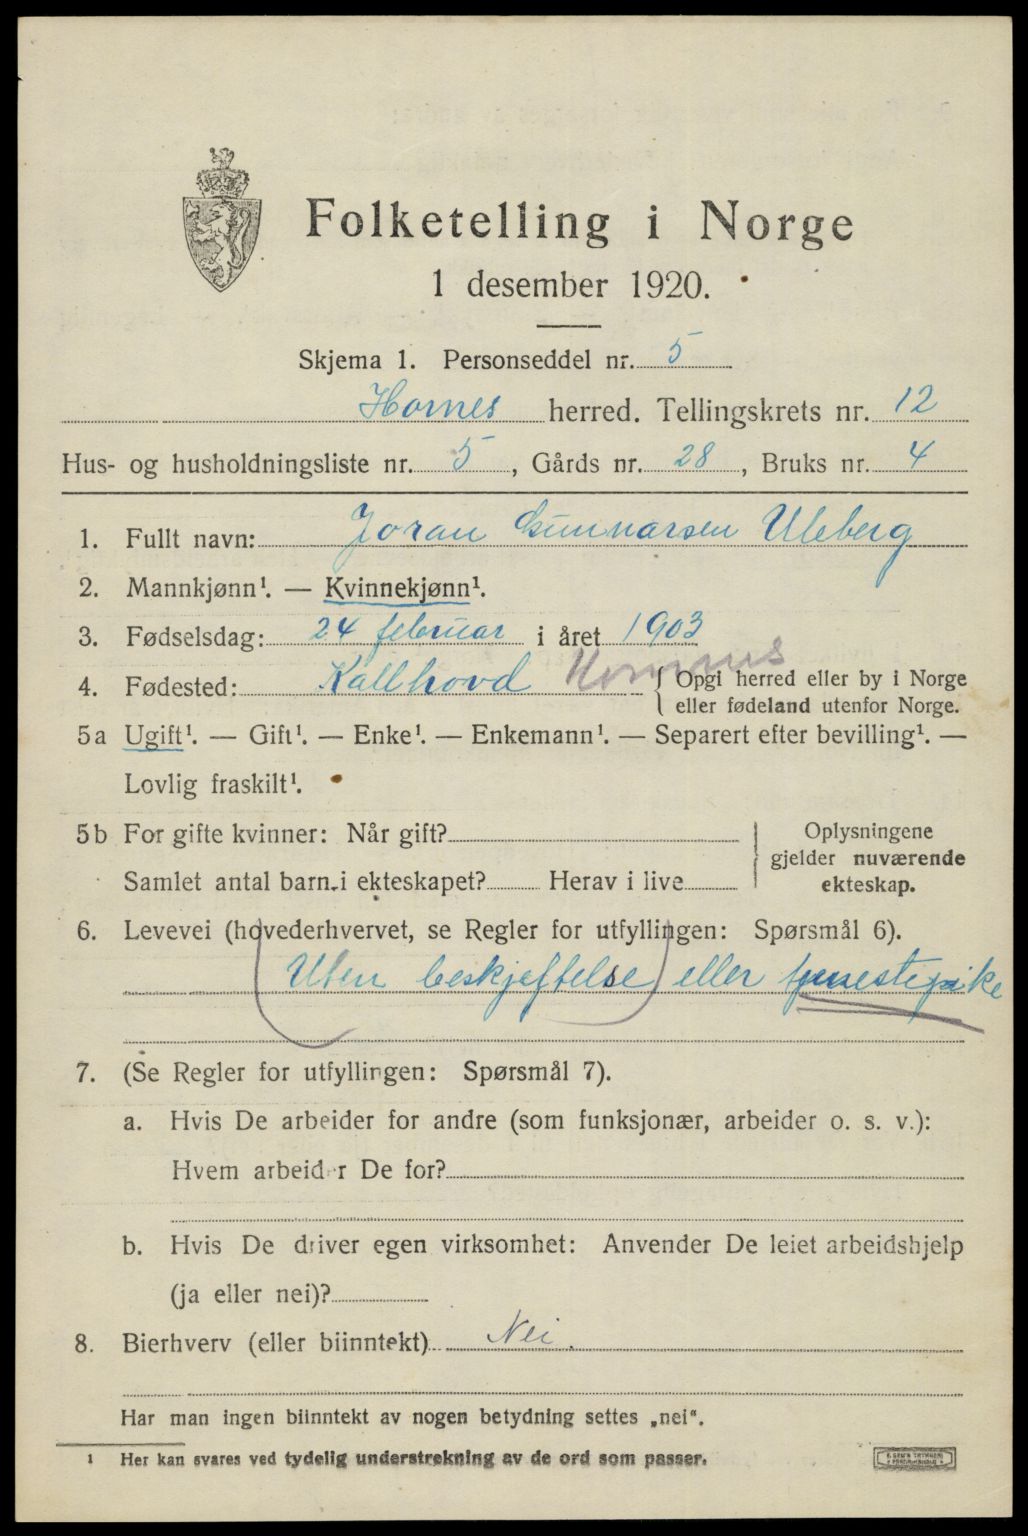 Folketelling i Norge
1 desember 1920.
Skjema 1. Personseddel nr. 5
Hornes herred. Tellingskrets nr. 12
Hus- og husholdningsliste nr. 5, Gårds nr. 28, Bruks nr. 4
1. Fullt navn: Joran Gunnarsen Uleberg
2. Mannkjønn¹. — Kvinnekjønn¹.
3. Fødselsdag: 24 februar i året 1903
4. Fødested: Kallhovd Hornnes { Opgi herred eller by i Norge
eller fødeland utenfor Norge.
5a Ugift¹. — Gift¹. — Enke¹. — Enkemann¹. — Separert efter bevilling¹. —
Lovlig fraskilt¹.
5b For gifte kvinner: Når gift? Oplysningene
gjelder nuværende
Samlet antal barn i ekteskapet? Herav i live ekteskap.
6. Levevei (hovederhvervet, se Regler for utfyllingen: Spørsmål 6).
(Uten beskjeftelse) eller tjenestepike
7. (Se Regler for utfyllingen: Spørsmål 7).
a. Hvis De arbeider for andre (som funksjonær, arbeider o. s. v.):
Hvem arbeider De for?
b. Hvis De driver egen virksomhet: Anvender De leiet arbeidshjelp
(ja eller nei)?
8. Bierhverv (eller biinntekt) Nei.
Har man ingen biinntekt av nogen betydning settes „nei“.
¹ Her kan svares ved tydelig understrekning av de ord som passer.